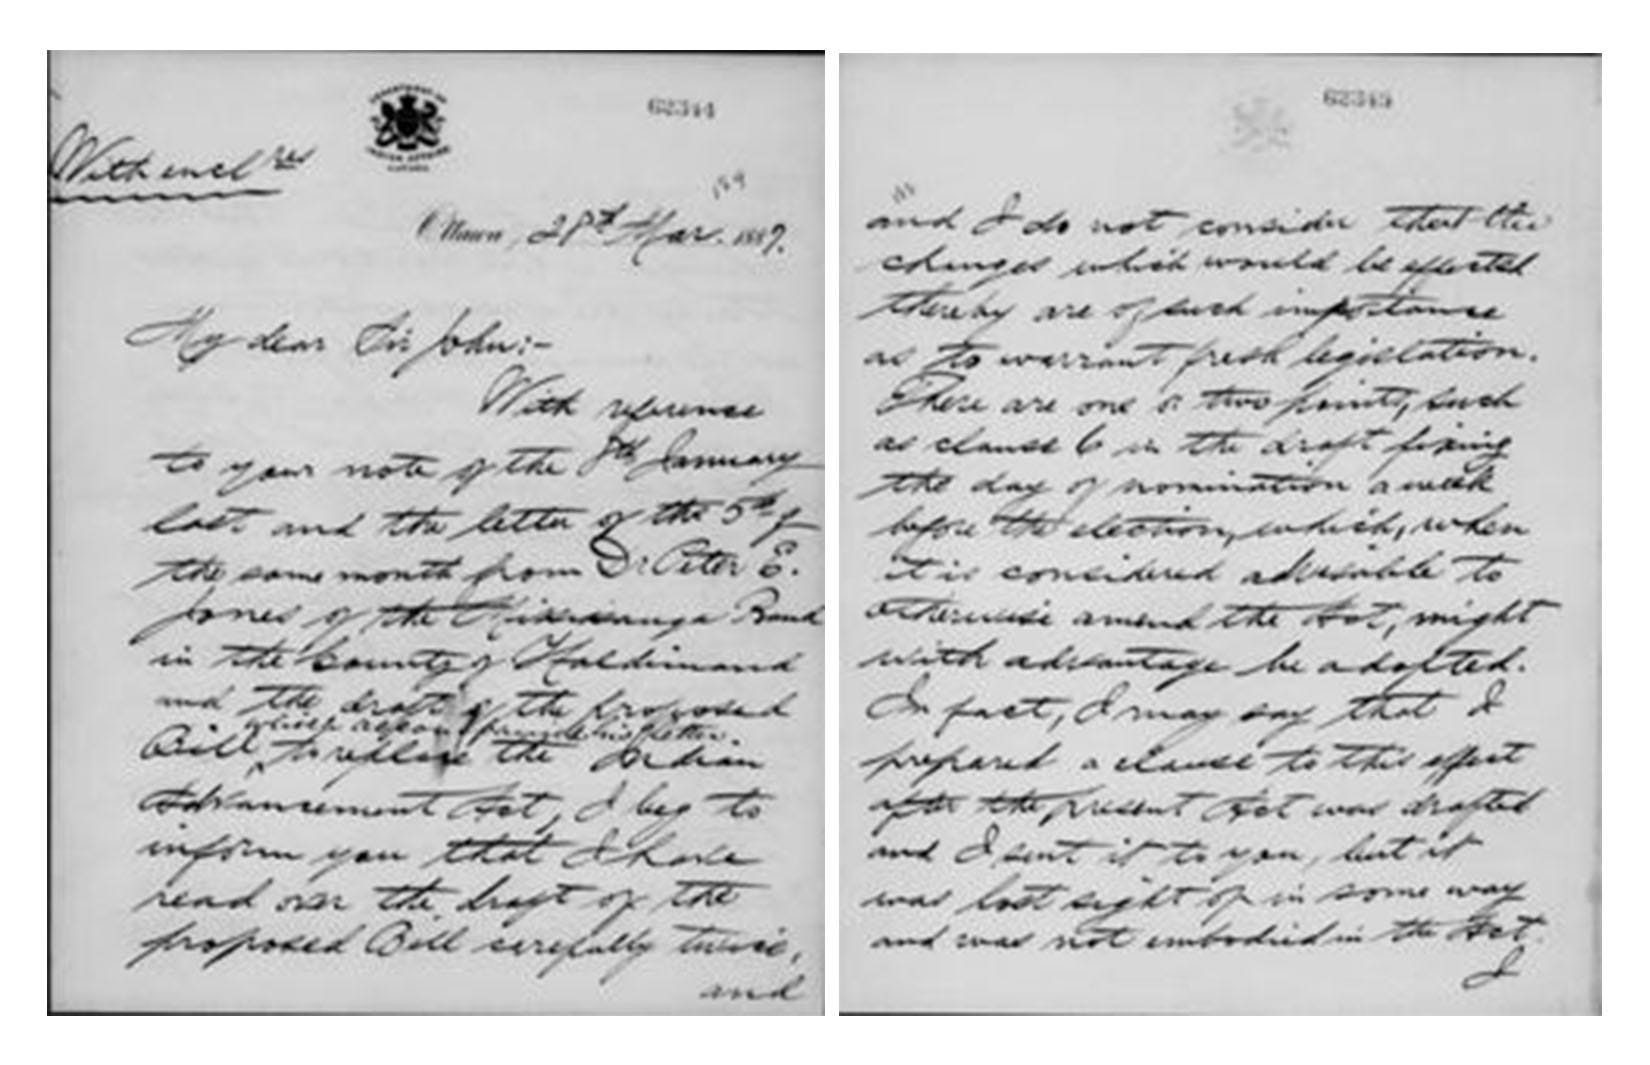 62344
With encl res
DEPARTMENT OF
INDIAN AFFAIRS
CANADA
Ottawa, 28th Mar. 1887.
My dear Sir John:-
With reference
to your note of the 8th January
last and the letter of the 5th of
the same month from Dr Peter E.
Jones of the Mississauga Band
in the County of Haldimand
and the draft of the proposed
which accompanied his letter.
Bill, to replace the Indian
Advancement Act, I beg to
inform you that I have
read over the draft of the
proposed Bill carefully twice,
and
62345
and I do not consider that the
changes which would be effected
thereby are of such importance
as to warrant fresh legislation.
There are one or two points, such
as clause 6 in the draft fixing
the day of nomination a week
before the election, which, when
it is considered advisable to
otherwise amend the Act, might
with advantage be adopted.
In fact, I may say that I
prepared a clause to this effect
after the present Act was drafted
and I sent it to you, but it
was lost sight of in some way
and was not embodied in the Act.
I